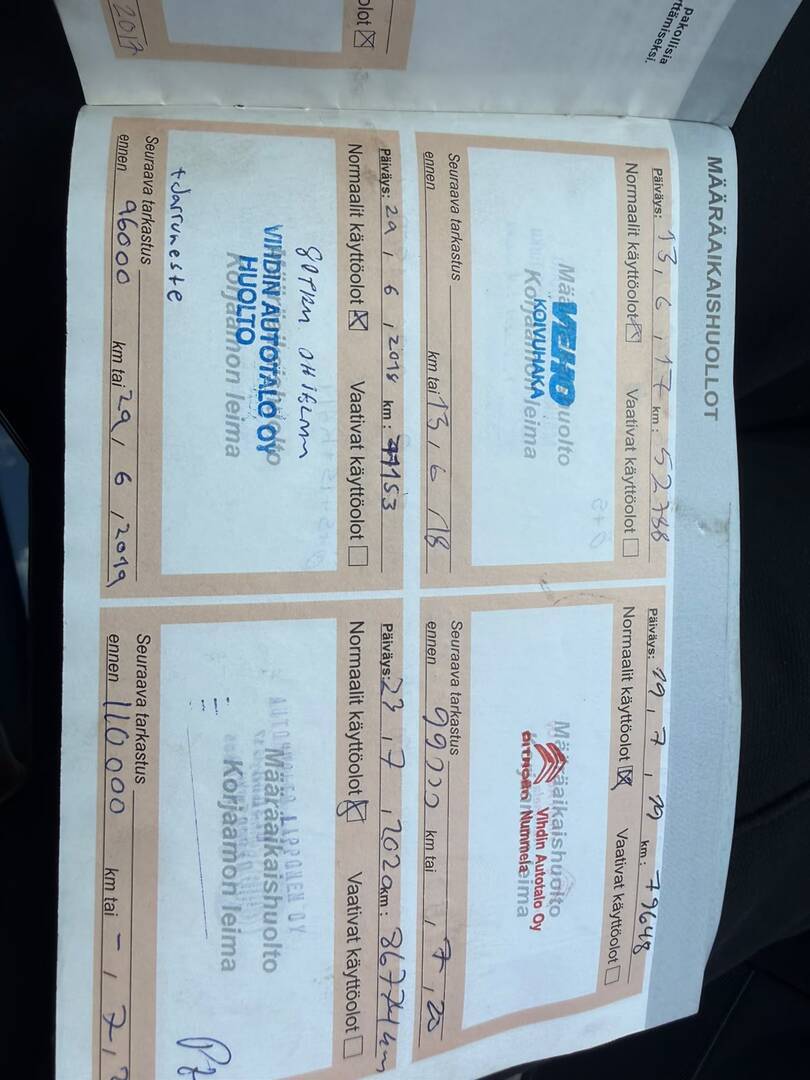 pakollisia
ttämiseksi.
olot ☒
2017
MÄÄRÄAIKAISHUOLLOT
Päiväys: 13, 6, 17 km: 52788
Normaalit käyttöolot ☒ Vaativat käyttöolot ☐
Määräaikaishuolto
Korjaamon leima
VEHO
KOIVUHAKA
Seuraava tarkastus
ennen km tai 13, 6, 18
Päiväys: 29, 6, 2018 km: 71153
Normaalit käyttöolot ☒ Vaativat käyttöolot ☐
VIHDIN AUTOTALO OY
HUOLTO
Korjaamon leima
+Jarruneste
Seuraava tarkastus
ennen 96000 km tai 29, 6, 2019
Päiväys: 19, 7, 19 km: 79648
Normaalit käyttöolot ☒ Vaativat käyttöolot ☐
Määräaikaishuolto
Korjaamon leima
Vihdin Autotalo Oy
CITROËN Nummela
Seuraava tarkastus
ennen 99000 km tai , 7, 20
Päiväys: 23, 7, 2020 km: 86774 km
Normaalit käyttöolot ☒ Vaativat käyttöolot ☐
LAPPONEN OY
Määräaikaishuolto
Korjaamon leima
Seuraava tarkastus
ennen 110000 km tai -, 7, 2